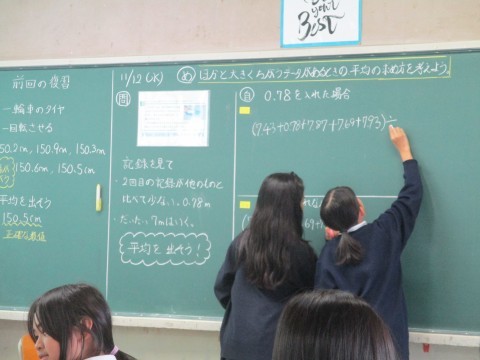 Best
11/12(水)
め ほかと大きくちがうデータがあるときの平均の求め方を考えよう。
前回の復習
一輪車のタイヤ
一回転させる
150.2m, 150.9m, 150.3m
150.6m, 150.5cm
平均を出そう
150.5cm
正確な数値
問
記録を見て
・2回目の記録が他のものと
比べて小さい。0.78m
・だいたい7mはいく。
平均を出そう!
自 0.78を入れた場合
(7.43+0.78+7.87+7.69+7.93)÷